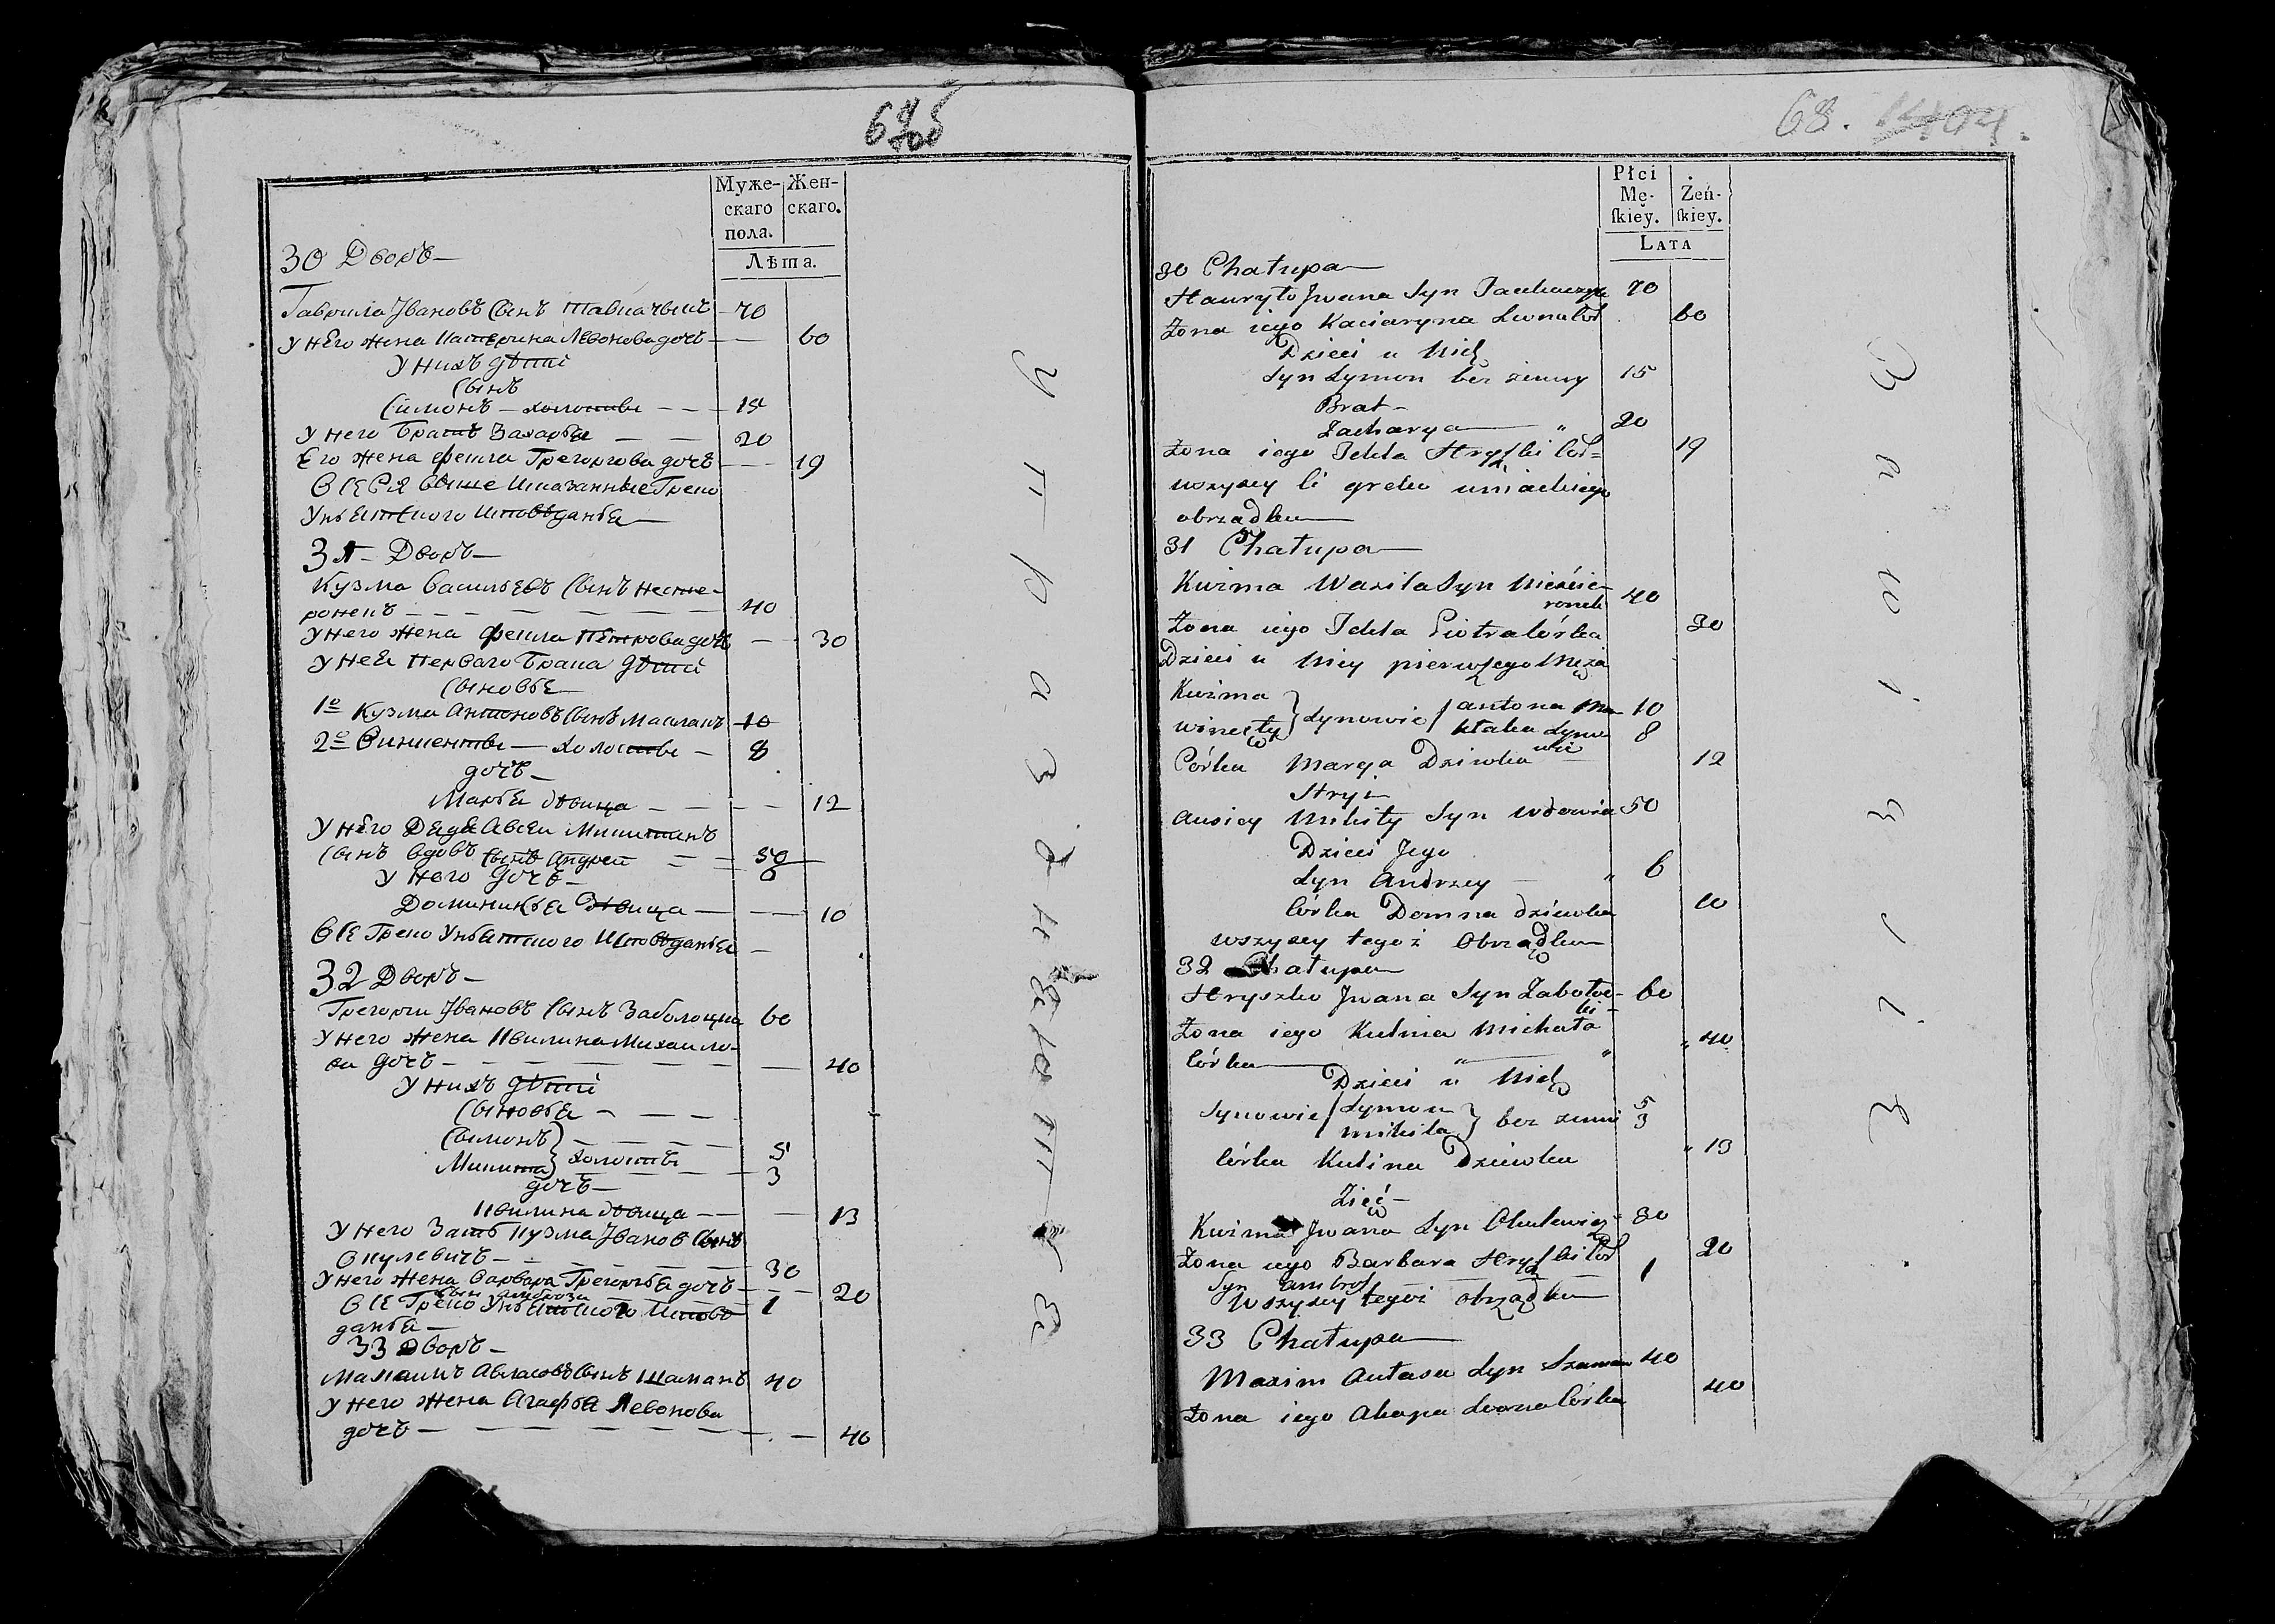 Муже-
скаго
пола.
Жен-
скаго.
Лѣта.
30 Дворъ
Гаврила Ивановъ сынъ 70
у него жена Катерина Левонова дочь 60
у нихъ дѣти
сынъ
Симонъ холостъ 15
у него братъ Захарья 20
Его жена Фекла Грегорьева дочь 19
все выше Указанные Греко
Униятского Исповѣданья
31 Дворъ
Кузма Васильевъ сынъ Несте-
ронекъ 40
у него жена Фекла Петрова дочь 30
у нее перваго брака дѣти
сыновья
1е Кузма Антоновъ сынъ 10
2е Винцентъ холостъ 8
дочь
Марья дѣвица 12
у него дядя Авсеи Микитинъ
сынъ вдовъ сынъ Андреи 50
у него дочь
Доминикья дѣвица 10
все Греко Униятского Исповѣданья
32 Дворъ
Грегори Ивановъ сынъ Заболоцки 60
у него жена Акилина Михаило-
ва дочь 40
у нихъ дѣти
сыновья
Симонъ 5
Микита холосты 3
дочь
Акилина дѣвица 13
у него зять Кузма Иванов сынъ
Окулевичъ 30
у него жена Варвара Грегорьева дочь 20
сын Амброзы 1
все Греко Униятского Исповѣ-
данья
33 Дворъ
Максимъ Авласовъ сынъ Шаманъ 40
у него жена Агафья Левонова
дочь 40
68.
Płci
Mę-
ſkiey.
Żeń-
ſkiey.
LATA
30 Chałupa
Hauryło Jwana Syn 70
Żona iego Kaciaryna Leona Cor 60
Dzieci u Nich
Syn Symon bez żenny 15
Brat
Zacharya 20
Żona iego Tekla Hryſki Cor 19
wszyscy li greko uniackiego
obrządku
31 Chałupa
Kuźma Wasila Syn Nieście-
ronek 40
Żona iego Tekla Piotra Córka 30
Dzieci u Niey pierwſzego Męża
Kuźma 10
Wincęty Synowie antona Ma-
kłaka Syno-
wie 8
Córka Marya Dziewka 12
Stryi
Ausiey Mikity Syn Wdowiec 50
Dzieci Jego
Syn Andrzey 6
Córka Domna dziewka 10
wszyscy tegoż Obrządku
32 Chałupa
Hryszko Jwana Syn Zabołoc-
ki 60
Żona iego Kulina Michała
Córka 40
Dzieci u Nich
Synowie Symon 5
Mikita bez żenni 3
Córka Kulina Dziewka 13
Zięć
Kuźma Jwana Syn Okulewicz 30
Żona iego Barbara Hryſki Cor 20
Syn ambroſ 1
Wszyscy tegoż obrządku
33 Chałupa
Maxim Aułasa Syn Szaman 40
Żona iego Ahapa Leona Córka 40